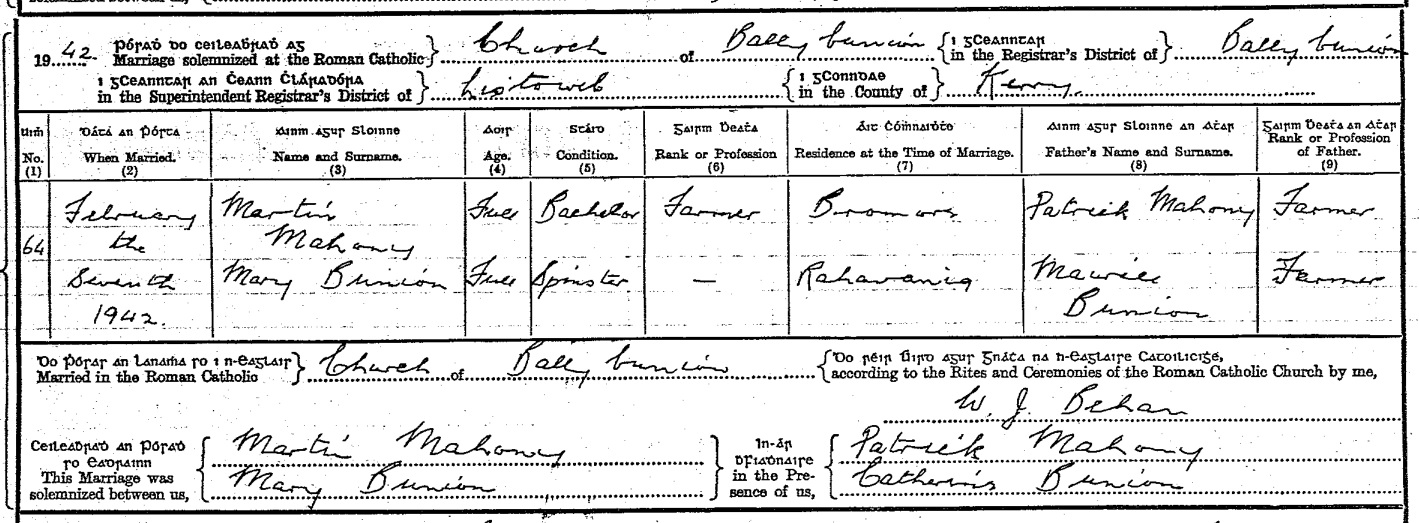 19 42. Pósaḋ do ceileaḃraḋ ag Marriage solemnized at the Roman Catholic Church of Ballybunion i gCeanntar in the Registrar's District of Ballybunion
i gCeanntar an Ċeann Ċláraḋóra in the Superintendent Registrar's District of Listowel i gConndae in the County of Kerry.
Uiṁ Dáta an Pósta Ainm agus Sloinne Aois Stáid Gairm Ḃeaṫa Áit Coṁnaiḋṫe Ainm agus Sloinne an Aṫar Gairm Ḃeaṫa an Aṫar
No. When Married. Name and Surname. Age. Condition. Rank or Profession Residence at the Time of Marriage. Father's Name and Surname. Rank or Profession of Father.
(1) (2) (3) (4) (5) (6) (7) (8) (9)
February Martin Full Bachelor Farmer Bromore Patrick Mahony Farmer
64 the Mahony
Seventh Mary Bunion Full Spinster — Rahavanig Maurice Farmer
1942. Bunion
Do Pósaḋ an lanaṁa so i n-eaglais Married in the Roman Catholic Church of Ballybunion Do réir Ḃird agus Gnáṫa na h-Eaglaise Catoilicige, according to the Rites and Ceremonies of the Roman Catholic Church by me,
W. J. Behan
Ceileaḃraḋ an Pósaḋ so eadrainn This Marriage was solemnized between us, Martin Mahony In-ár ḃfiaḋnaire in the Presence of us, Patrick Mahony
Mary Bunion Catherine Bunion